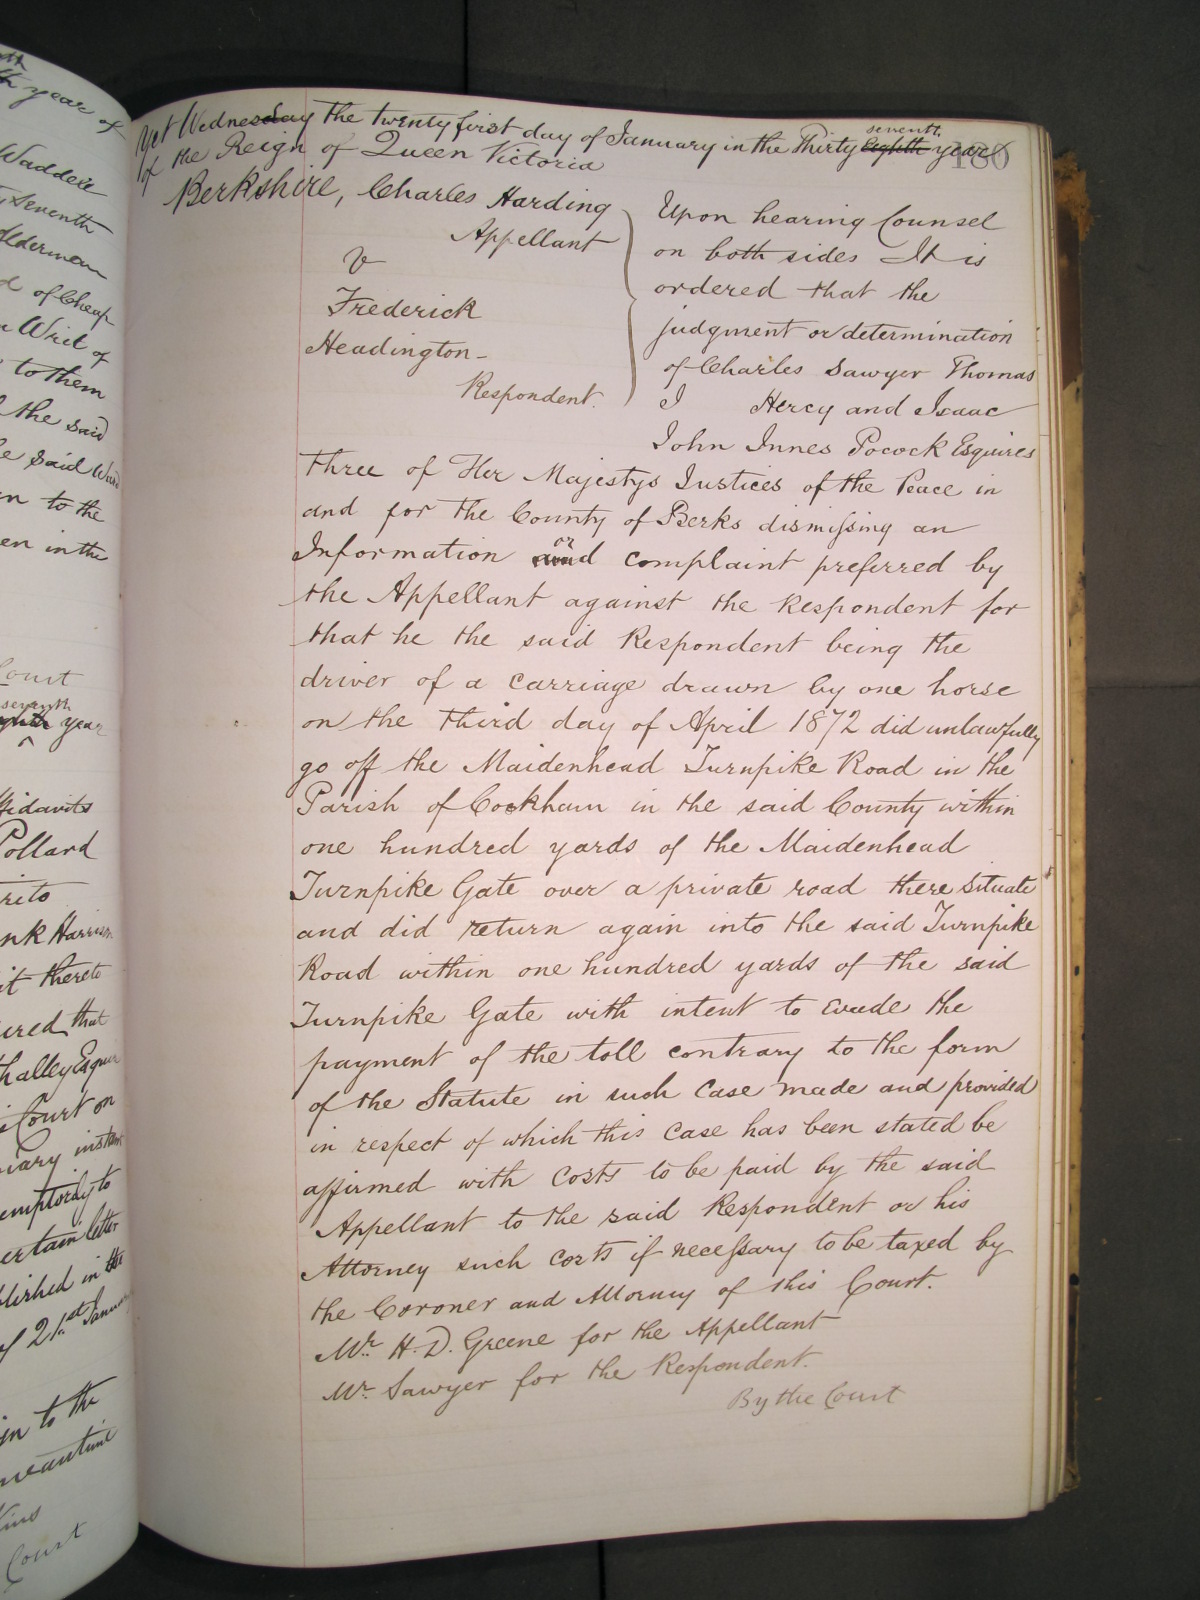 th
th year of
Waddell
seventh
Alderman
of Cheap
Writ of
to them
the said
said
n to the
en in the
Court
seventh
year
ffidavits
Pollard
nk Harrison
it thereto
ured that
Esquire
Court on
uary instant
emptorily to
ertain letter
blished in the
of 21st January
in to the
meantime
Court
180
Yet Wednesday the twenty first day of January in the Thirty seventh eighth year
of the Reign of Queen Victoria
Berkshire, Charles Harding
Appellant
v
Frederick
Headington
Respondent.
Upon hearing Counsel
on both sides It is
ordered that the
judgment or determination
of Charles Sawyer Thomas
J Hercy and Isaac
John Innes Pocock Esquires
three of Her Majestys Justices of the Peace in
and for the County of Berks dismissing an
Information and or complaint preferred by
the Appellant against the Respondent for
that he the said Respondent being the
driver of a carriage drawn by one horse
on the third day of April 1872 did unlawfully
go off the Maidenhead Turnpike Road in the
Parish of Cookham in the said County within
one hundred yards of the Maidenhead
Turnpike Gate over a private road there situate
and did return again into the said Turnpike
Road within one hundred yards of the said
Turnpike Gate with intent to evade the
payment of the toll contrary to the form
of the Statute in such case made and provided
in respect of which this case has been stated be
affirmed with costs to be paid by the said
Appellant to the said Respondent or his
Attorney such costs if necessary to be taxed by
the Coroner and Attorney of this Court.
Mr. H. D. Greene for the Appellant
Mr. Sawyer for the Respondent.
By the Court